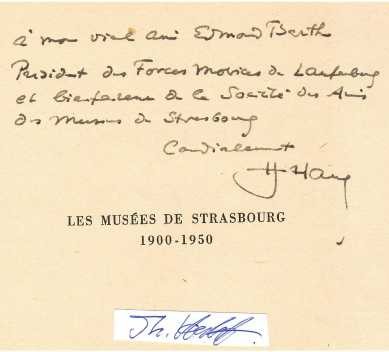 à mon vieil ami Edmond Barth
Président des Forces Motrices de Laufenburg
et bienfaiteur de la Société des Amis
des Musées de Strasbourg
Cordialement
H Haug
LES MUSÉES DE STRASBOURG
1900-1950
Th.